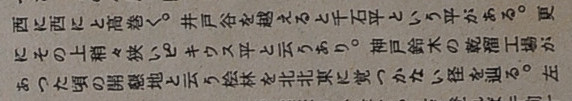 西に西にと高巻く。井戸谷を越えると千石平という平がある。更
にその上稍々狭いビキウス平と云うあり。神戸鈴木の乾溜工場が
あった頃の開墾地と云う桧林を北北東に覚つかない径を辿る。左